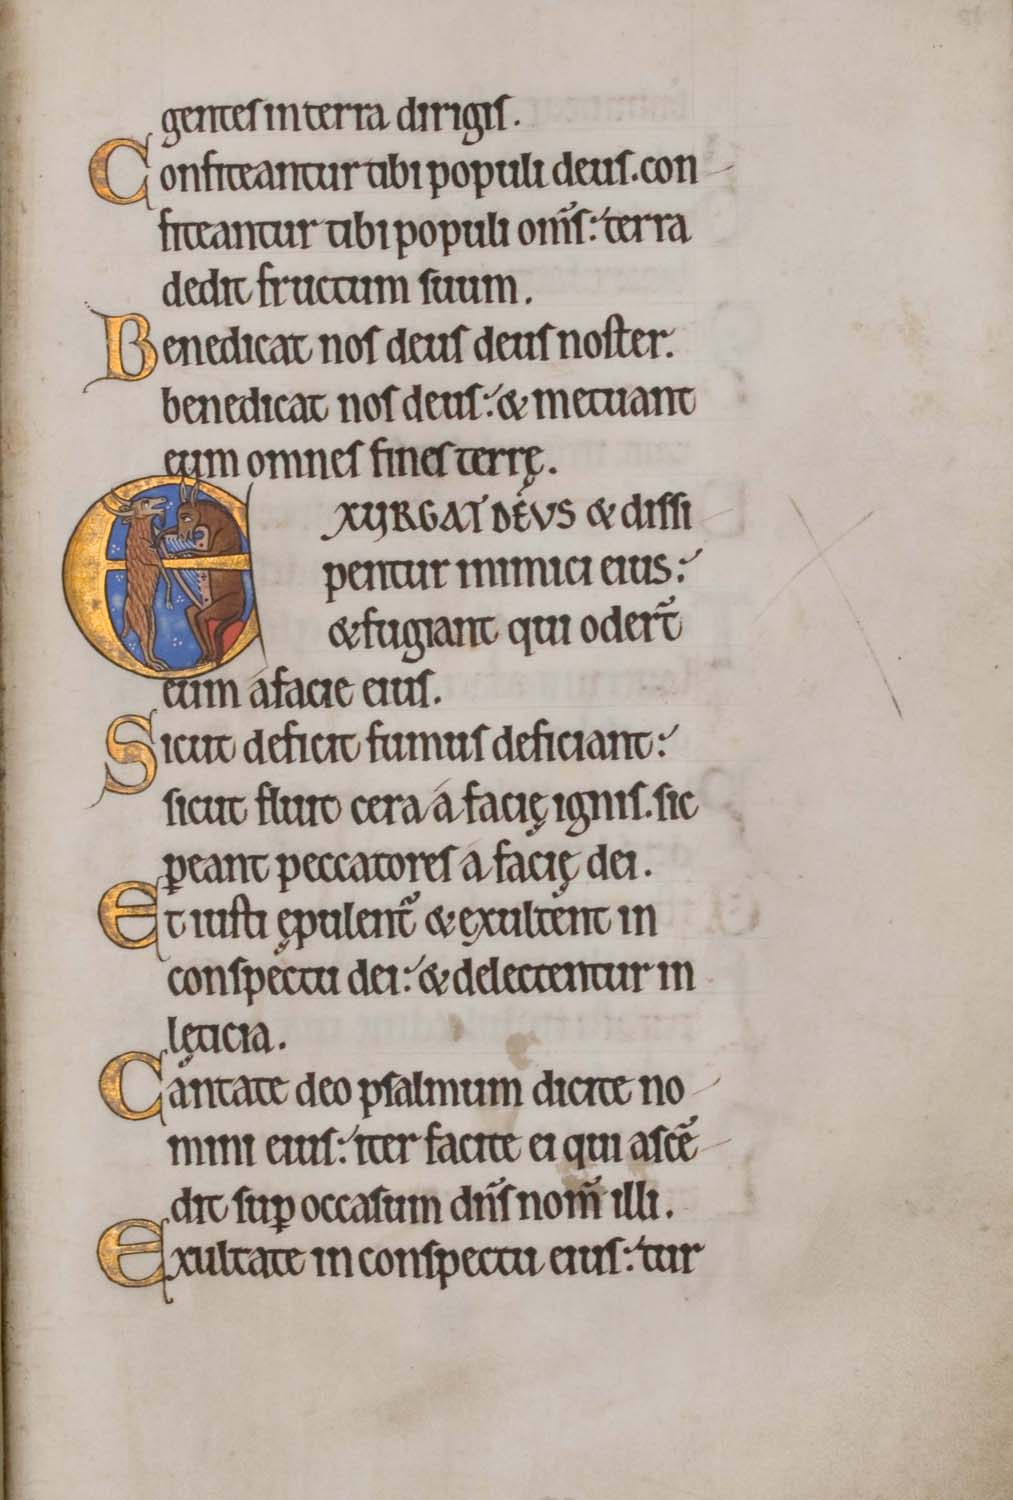 gentes in terra dirigis.
Confiteantur tibi populi deus. con
fiteantur tibi populi om̅s: terra
dedit fructum suum.
Benedicat nos deus deus noster.
benedicat nos deus: & metuant
eum omnes fines terrę.
EXURGAT DEVS & dissi
pentur inimici eius:
& fugiant qui oder̅t
eum a facie eius.
Sicut deficit fumus deficiant:
sicut fluit cera a facię ignis. sic
ꝑeant peccatores a facię dei.
Et iusti ępulent᷑ & ęxultent in
conspectu dei: & delectentur in
lęticia.
Cantate deo psalmum dicite no
mini eius: iter facite ei qui asce̅
dit suꝑ occasum dn̅s nom̅ illi.
Exultate in conspectu eius: tur